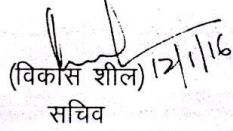 (विकास शील) 12/1/16
सचिव